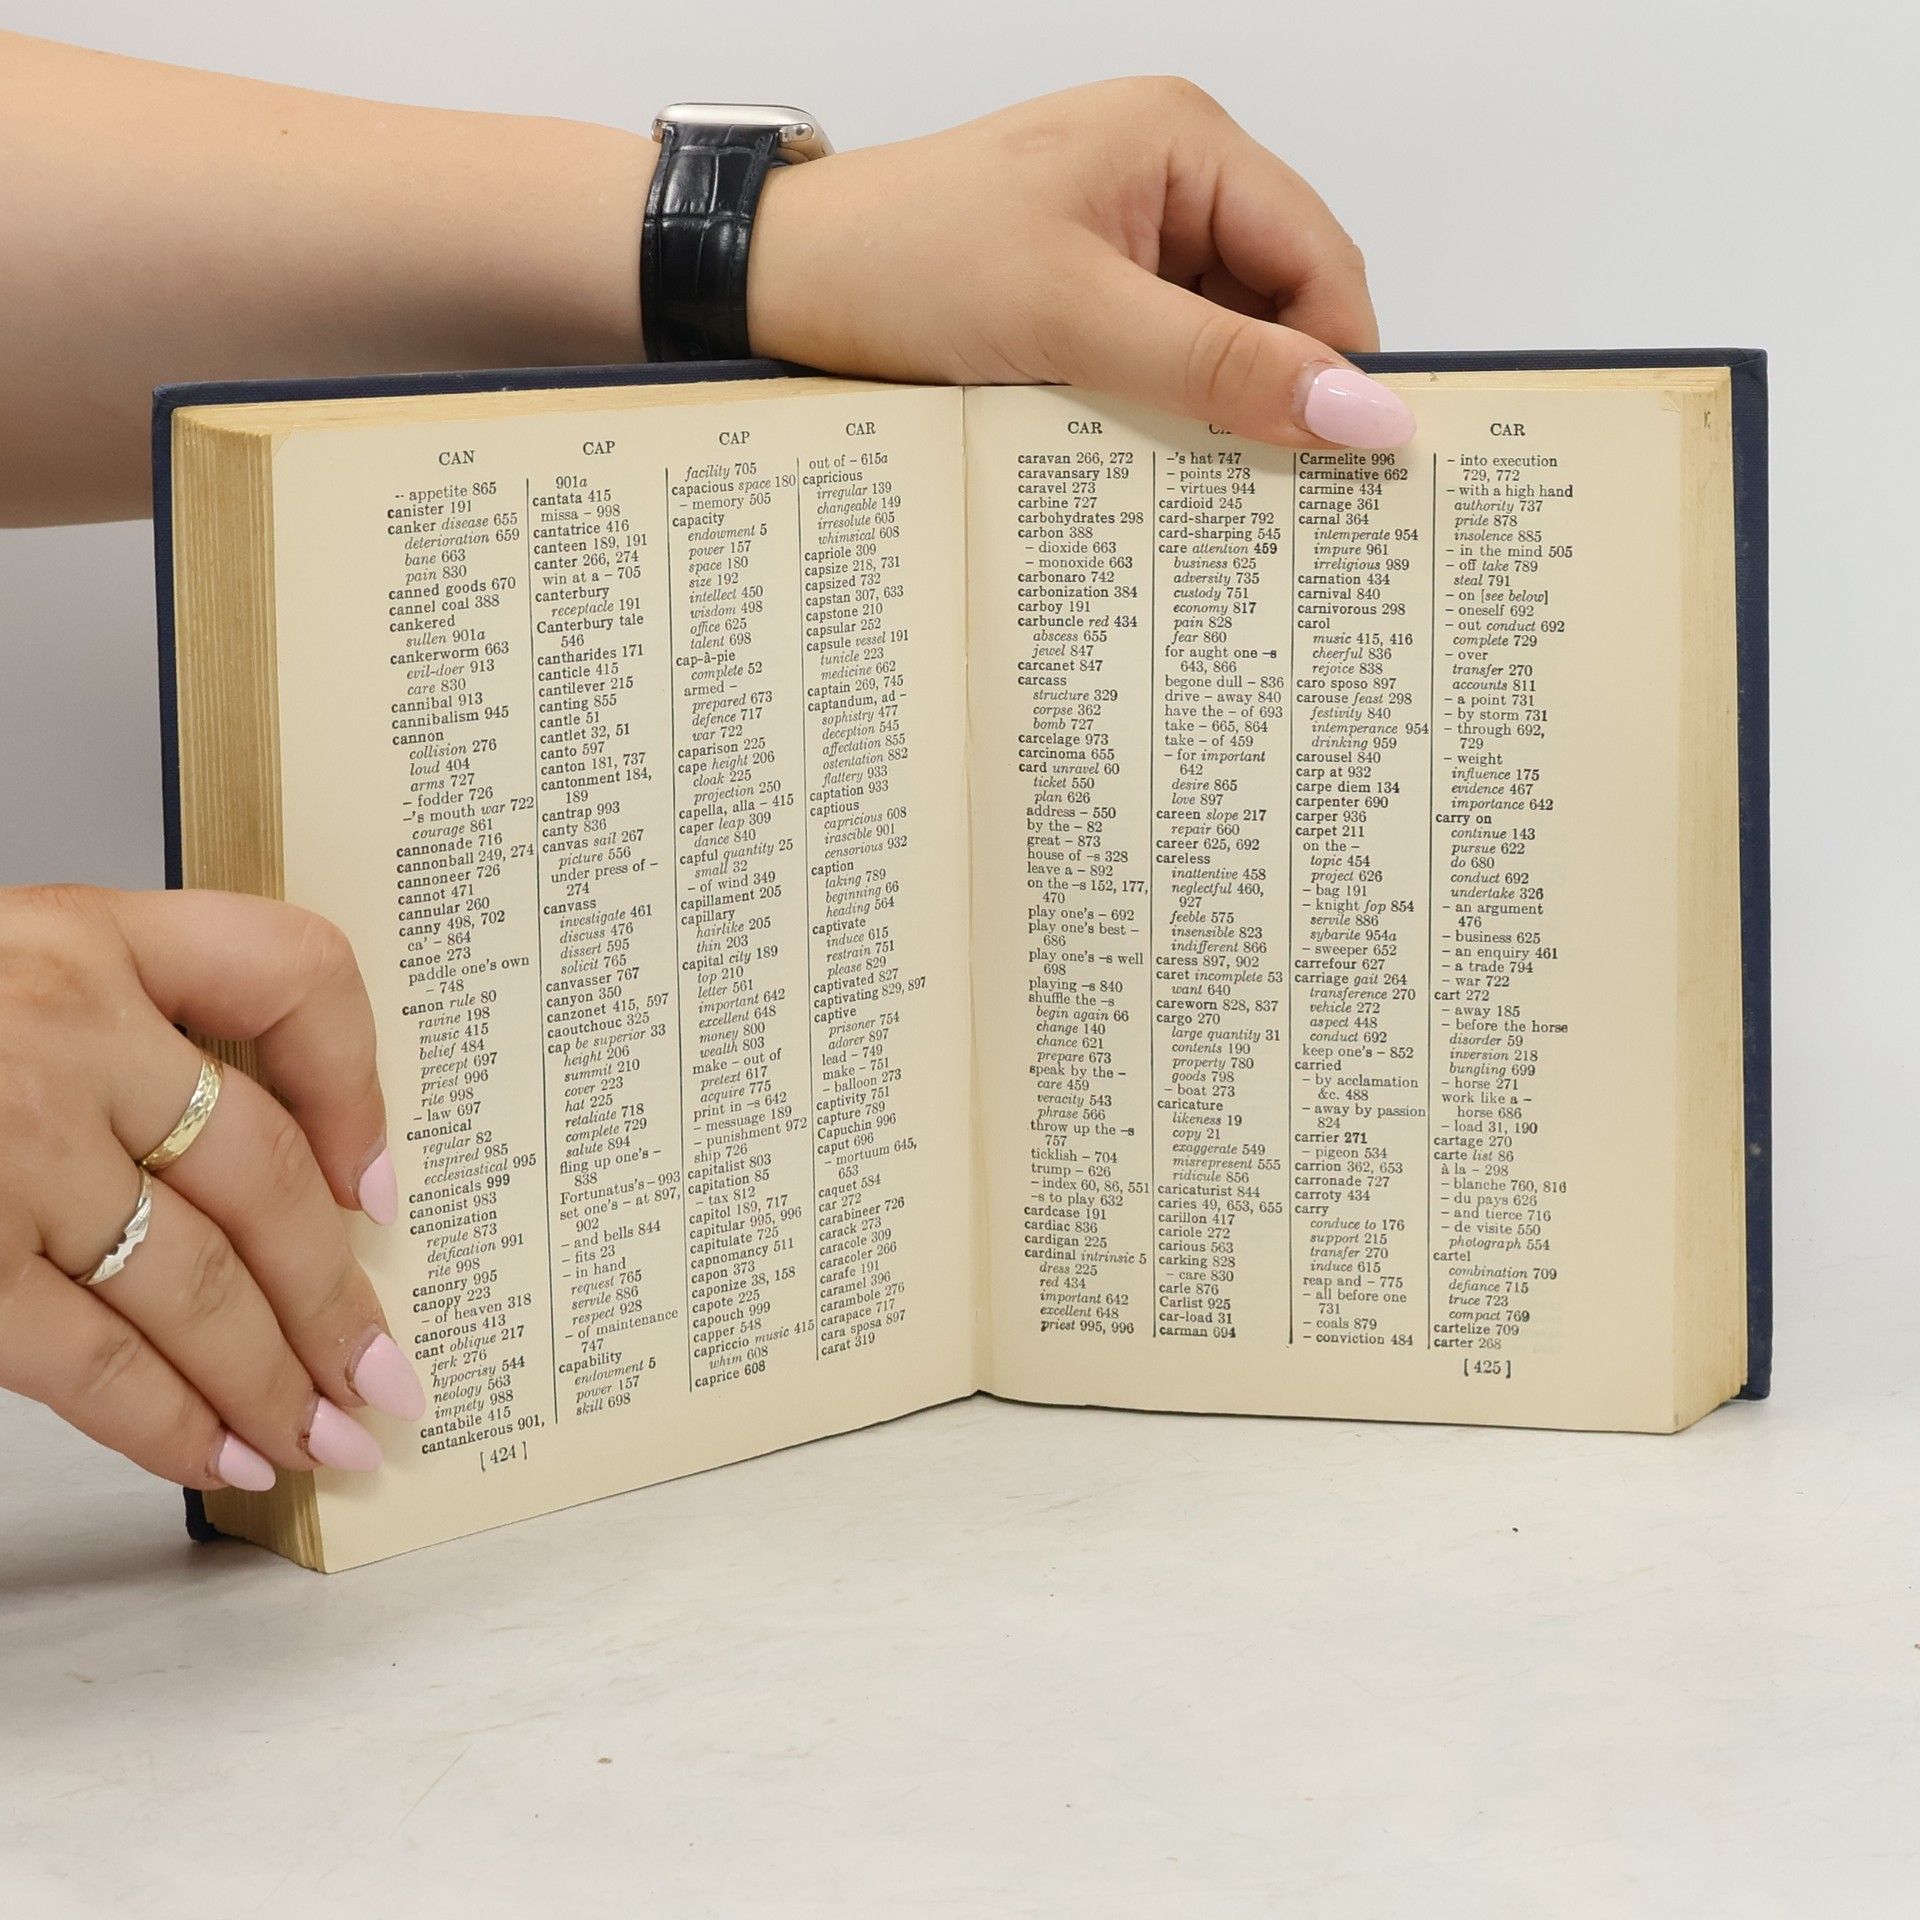 CAN
-- appetite 865
canister 191
canker disease 655
deterioration 659
bane 663
pain 830
canned goods 670
cannel coal 388
cankered
sullen 901a
cankerworm 663
evil-doer 913
care 830
cannibal 913
cannibalism 945
cannon
collision 276
loud 404
arms 727
– fodder 726
–'s mouth war 722
courage 861
cannonade 716
cannonball 249, 274
cannoneer 726
cannot 471
cannular 260
canny 498, 702
ca' – 864
canoe 273
paddle one's own
– 748
canon rule 80
ravine 198
music 415
belief 484
precept 697
priest 996
rite 998
– law 697
canonical
regular 82
inspired 985
ecclesiastical 995
canonicals 999
canonist 983
canonization
repute 873
deification 991
rite 998
canonry 995
canopy 223
– of heaven 318
canorous 413
cant oblique 217
jerk 276
hypocrisy 544
neology 563
impiety 988
cantabile 415
cantankerous 901,
CAP
901a
cantata 415
missa – 998
cantatrice 416
canteen 189, 191
canter 266, 274
win at a – 705
canterbury
receptacle 191
Canterbury tale
546
cantharides 171
canticle 415
cantilever 215
canting 855
cantle 51
cantlet 32, 51
canto 597
canton 181, 737
cantonment 184,
189
cantrap 993
canty 836
canvas sail 267
picture 556
under press of –
274
canvass
investigate 461
discuss 476
dissert 595
solicit 765
canvasser 767
canyon 350
canzonet 415, 597
caoutchouc 325
cap be superior 33
height 206
summit 210
cover 223
hat 225
retaliate 718
complete 729
salute 894
fling up one's –
838
Fortunatus's – 993
set one's – at 897,
902
– and bells 844
– fits 23
– in hand
request 765
servile 886
respect 928
– of maintenance
747
capability
endowment 5
power 157
skill 698
CAP
facility 705
capacious space 180
– memory 505
capacity
endowment 5
power 157
space 180
size 192
intellect 450
wisdom 498
office 625
talent 698
cap-à-pie
complete 52
armed –
prepared 673
defence 717
war 722
caparison 225
cape height 206
cloak 225
projection 250
capella, alla – 415
caper leap 309
dance 840
capful quantity 25
small 32
– of wind 349
capillament 205
capillary
hairlike 205
thin 203
capital city 189
top 210
letter 561
important 642
excellent 648
money 800
wealth 803
make – out of
pretext 617
acquire 775
print in –s 642
– message 189
– punishment 972
ship 726
capitalist 803
capitation 85
– tax 812
capitol 189, 717
capitular 995, 996
capitulate 725
capnomancy 511
capon 373
caponize 38, 158
capote 225
capouch 999
capper 548
capriccio music 415
whim 608
caprice 608
CAR
out of – 615a
capricious
irregular 139
changeable 149
irresolute 605
whimsical 608
capriole 309
capsize 218, 731
capsized 732
capstan 307, 633
capstone 210
capsular 252
capsule vessel 191
tunicle 223
medicine 662
captain 269, 745
captandum, ad –
sophistry 477
deception 545
affectation 855
ostentation 882
flattery 933
captation 933
captious
capricious 608
irascible 901
censorious 932
caption
taking 789
beginning 66
heading 564
captivate
induce 615
restrain 751
please 829
captivated 827
captivating 829, 897
captive
prisoner 754
adorer 897
lead – 749
make – 751
– balloon 273
captivity 751
capture 789
Capuchin 996
caput 696
– mortuum 645,
653
caquet 584
car 272
carabineer 726
carack 273
caracole 309
caracoler 266
carafe 191
caramel 396
carambole 276
carapace 717
cara sposa 897
carat 319
[ 424 ]
CAR
caravan 266, 272
caravansary 189
caravel 273
carbine 727
carbohydrates 298
carbon 388
– dioxide 663
– monoxide 663
carbonaro 742
carbonization 384
carboy 191
carbuncle red 434
abscess 655
jewel 847
carcanet 847
carcass
structure 329
corpse 362
bomb 727
carcelage 973
carcinoma 655
card unravel 60
ticket 550
plan 626
address – 550
by the – 82
great – 873
house of –s 328
leave a – 892
on the –s 152, 177,
470
play one's – 692
play one's best –
686
play one's –s well
698
playing –s 840
shuffle the –s
begin again 66
change 140
chance 621
prepare 673
speak by the –
care 459
veracity 543
phrase 566
throw up the –s
757
ticklish – 704
trump – 626
– index 60, 86, 551
–s to play 632
cardcase 191
cardiac 836
cardigan 225
cardinal intrinsic 5
dress 225
red 434
important 642
excellent 648
priest 995, 996
–'s hat 747
– points 278
– virtues 944
cardioid 245
card-sharper 792
card-sharping 545
care attention 459
business 625
adversity 735
custody 751
economy 817
pain 828
fear 860
for aught one –s
643, 866
begone dull – 836
drive – away 840
have the – of 693
take – 665, 864
take – of 459
– for important
642
desire 865
love 897
careen slope 217
repair 660
career 625, 692
careless
inattentive 458
neglectful 460,
927
feeble 575
insensible 823
indifferent 866
caress 897, 902
caret incomplete 53
want 640
careworn 828, 837
cargo 270
large quantity 31
contents 190
property 780
goods 798
– boat 273
caricature
likeness 19
copy 21
exaggerate 549
misrepresent 555
ridicule 856
caricaturist 844
caries 49, 653, 655
carillon 417
cariole 272
carious 563
carking 828
– care 830
carle 876
Carlist 925
car-load 31
carman 694
Carmelite 996
carminative 662
carmine 434
carnage 361
carnal 364
intemperate 954
impure 961
irreligious 989
carnation 434
carnival 840
carnivorous 298
carol
music 415, 416
cheerful 836
rejoice 838
caro sposo 897
carouse feast 298
festivity 840
intemperance 954
drinking 959
carousel 840
carp at 932
carpe diem 134
carpenter 690
carper 936
carpet 211
on the –
topic 454
project 626
– bag 191
– knight fop 854
servile 886
sybarite 954a
– sweeper 652
carrefour 627
carriage gait 264
transference 270
vehicle 272
aspect 448
conduct 692
keep one's – 852
carried
– by acclamation
&c. 488
– away by passion
824
carrier 271
– pigeon 534
carrion 362, 653
carronade 727
carroty 434
carry
conduce to 176
support 215
transfer 270
induce 615
reap and – 775
– all before one
731
– coals 879
– conviction 484
CAR
– into execution
729, 772
– with a high hand
authority 737
pride 878
insolence 885
– in the mind 505
– off take 789
steal 791
– on [see below]
– oneself 692
– out conduct 692
complete 729
– over
transfer 270
accounts 811
– a point 731
– by storm 731
– through 692,
729
– weight
influence 175
evidence 467
importance 642
carry on
continue 143
pursue 622
do 680
conduct 692
undertake 326
– an argument
476
– business 625
– an enquiry 461
– a trade 794
– war 722
cart 272
– away 185
– before the horse
disorder 59
inversion 218
bungling 699
– horse 271
work like a –
horse 686
– load 31, 190
cartage 270
carte list 86
à la – 298
– blanche 760, 816
– du pays 626
– and tierce 716
– de visite 550
photograph 554
cartel
combination 709
defiance 715
truce 723
compact 769
cartelize 709
carter 268
[ 425 ]